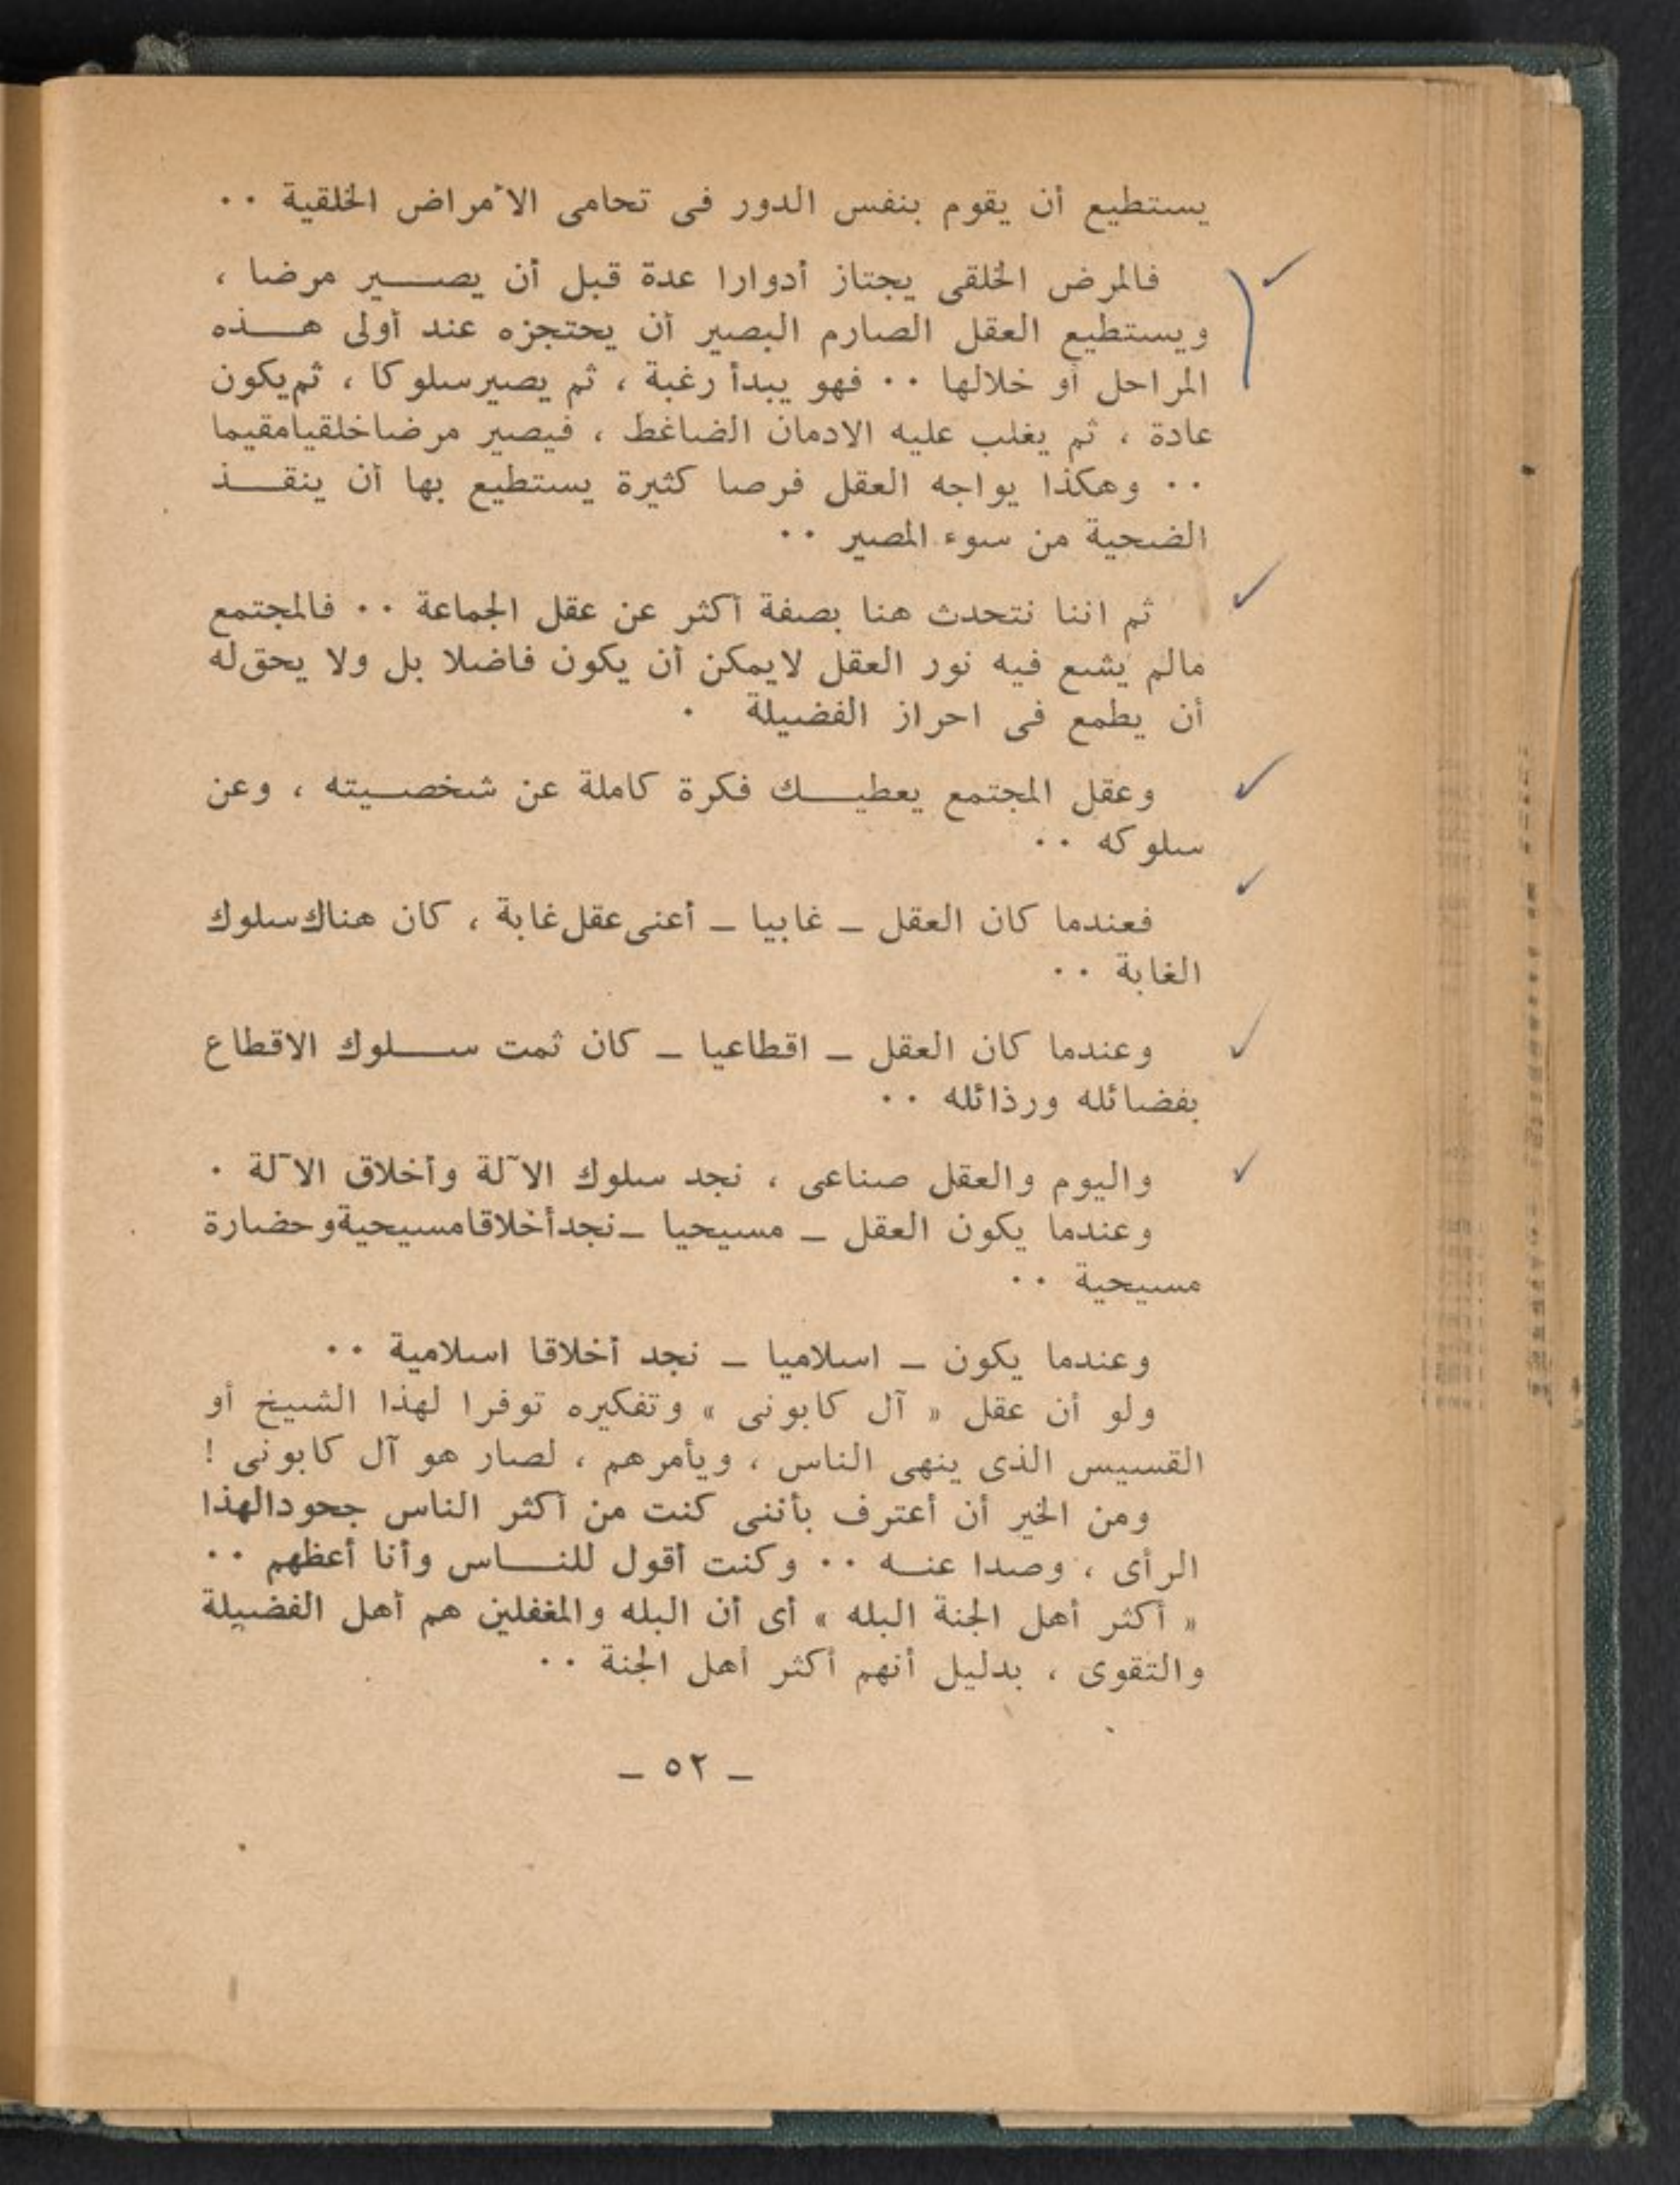 يستطيع أن يقوم بنفس الدور فى تحامى الأمراض الخلقية ٠٠
فالمرض الخلقى يجتاز أدوارا عدة قبل أن يصـــير مرضا ،
ويستطيع العقل الصارم البصير أن يحتجزه عند أولى هـــذه
المراحل أو خلالها ٠٠ فهو يبدأ رغبة ، ثم يصير سلوكا ، ثم يكون
عادة ، ثم يغلب عليه الادمان الضاغط ، فيصير مرضا خلقيا مقيما
٠٠ وهكذا يواجه العقل فرصا كثيرة يستطيع بها أن ينقـــذ
الضحية من سوء المصير ٠٠
ثم اننا نتحدث هنا بصفة أكثر عن عقل الجماعة ٠٠ فالمجتمع
مالم يشع فيه نور العقل لايمكن أن يكون فاضلا بل ولا يحق له
أن يطمع فى احراز الفضيلة ٠
وعقل المجتمع يعطيـــك فكرة كاملة عن شخصـيته ، وعن
سلوكه ٠٠
فعندما كان العقل ــ غابيا ــ أعنى عقل غابة ، كان هناك سلوك
الغابة ٠٠
وعندما كان العقل ــ اقطاعيا ــ كان ثمت ســـلوك الاقطاع
بفضائله ورذائله ٠٠
واليوم والعقل صناعى ، نجد سلوك الآلة وأخلاق الآلة ٠
وعندما يكون العقل ــ مسيحيا ــ نجد أخلاقا مسيحية وحضارة
مسيحية ٠٠
وعندما يكون ــ اسلاميا ــ نجد أخلاقا اسلامية ٠٠
ولو أن عقل « آل كابونى » وتفكيره توفرا لهذا الشيخ أو
القسيس الذى ينهى الناس ، ويأمرهم ، لصار هو آل كابونى !
ومن الخير أن أعترف بأننى كنت من أكثر الناس جحودا لهذا
الرأى ، وصدا عنـــه ٠٠ وكنت أقول للنـــاس وأنا أعظهم ٠٠
« أكثر أهل الجنة البله » أى أن البله والمغفلين هم أهل الفضيلة
والتقوى ، بدليل أنهم أكثر أهل الجنة ٠٠
ــ ٥٢ ــ